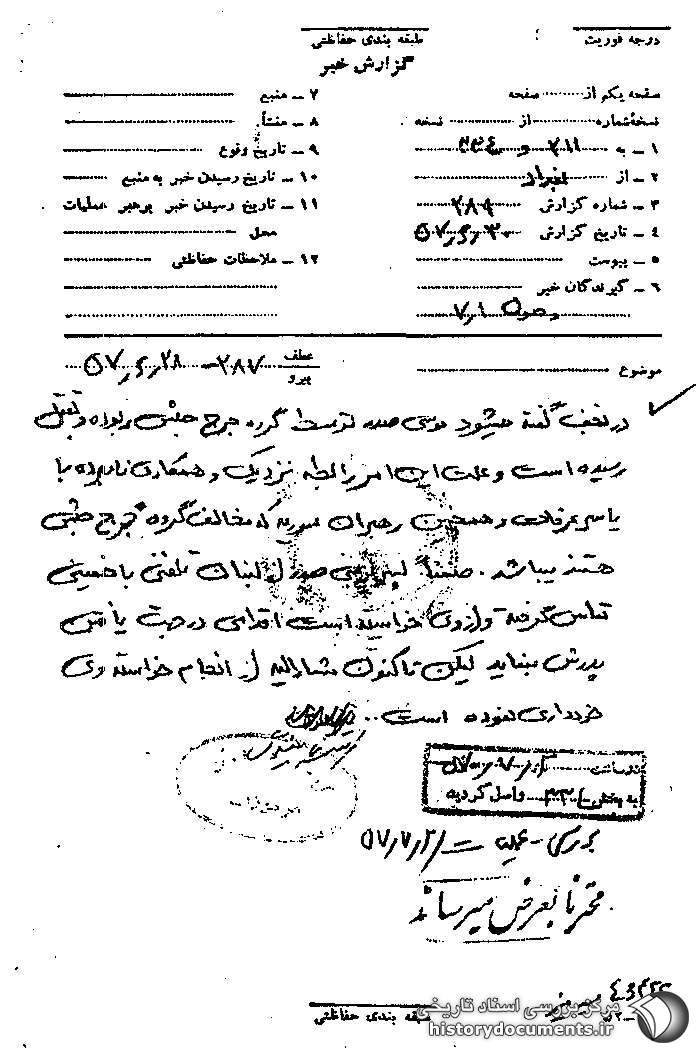 درجه فوریت
طبقه بندی حفاظتی
گزارش خبر
صفحه یکم از صفحه
نسخه شماره از نسخه
۱ ـ به ۳۱۱ و
۲ ـ از بغداد
۳ ـ شماره گزارش ۲۸۹
۴ ـ تاریخ گزارش ۳۰ر۶ر۵۷
۵ ـ پیوست
۶ ـ گیرندگان خبر
۷ ـ منبع
۸ ـ منشأ
۹ ـ تاریخ وقوع
۱۰ ـ تاریخ رسیدن خبر به منبع
۱۱ ـ تاریخ رسیدن خبر برهبر عملیات
محل
۱۲ ـ ملاحظات حفاظتی
موضوع
عطف
پیرو
۲۸۷ ـ ۲۸ر۶ر۵۷
در نجف گفته میشود موسی صدر توسط گروه جرج حبش ربوده و بقتل
رسیده است و علت این امر رابطه نزدیک و همکاری نامبرده با
یاسر عرفات و همچنین رهبران سوریه که مخالف گروه جرج حبش
هستند میباشد. ضمناً پسر موسی صدر از لبنان تلفنی با خمینی
تماس گرفته و از وی خواسته است اقدامی در جهت یافتن
پدرش بنماید لیکن تاکنون مشارالیه از انجام خواسته وی
خودداری نموده است..
در ساعت
به بخش ۳۳۲ واصل گردید
بررسی ـ ۵۷/۷/۲
محترماً بعرض میرساند
طبقه بندی حفاظتی
مرکز بررسی اسناد تاریخی
historydocuments.ir